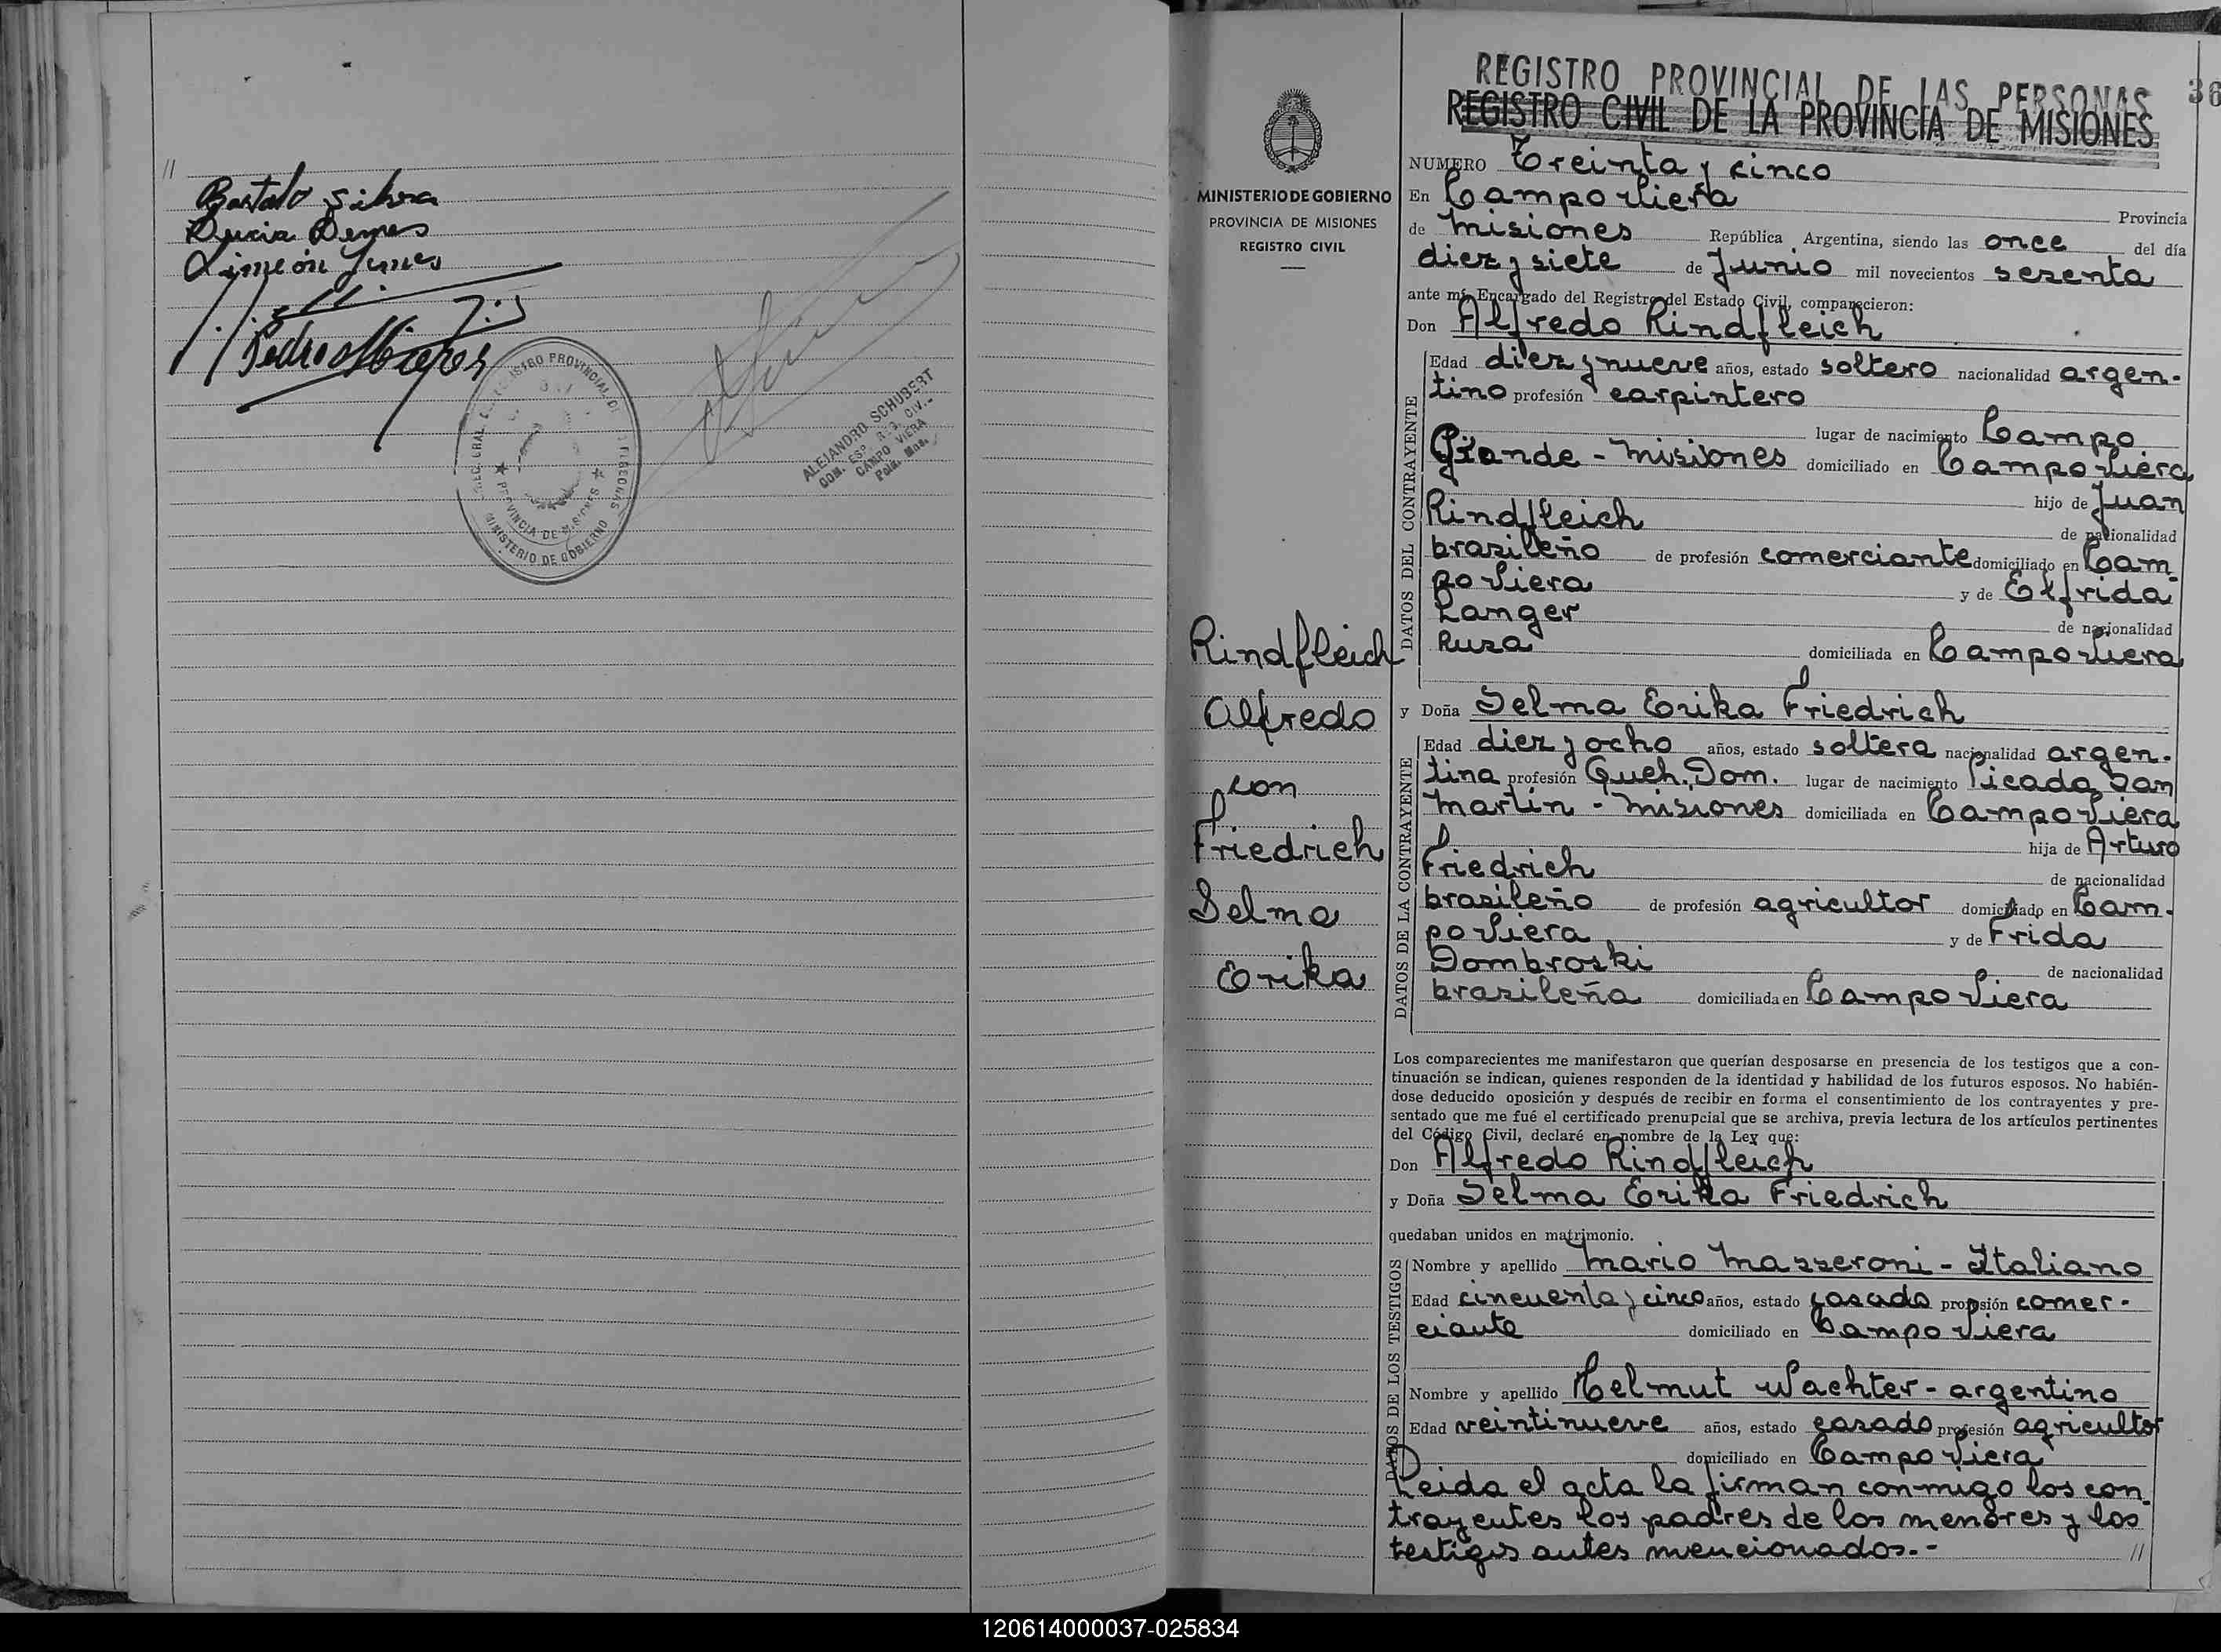 //
Bartolo Silva
Simeón
REGISTRO PROVINCIAL DE
MINISTERIO DE GOBIERNO
PROVINCIA DE MISIONES
ALEJANDRO SCHUBERT
COM. ESP. REG. CIV.-
CAMPO VIERA
Pcia. Mns.
REGISTRO PROVINCIAL DE LAS PERSONAS
36
REGISTRO CIVIL DE LA PROVINCIA DE MISIONES
MINISTERIO DE GOBIERNO
PROVINCIA DE MISIONES
REGISTRO CIVIL
NUMERO Treinta y cinco
En Campo Viera Provincia
de Misiones República Argentina, siendo las once del día
diez y siete de Junio mil novecientos sesenta
ante mí, Encargado del Registro del Estado Civil, comparecieron:
Don Alfredo Rindfleich
DATOS DEL CONTRAYENTE
Edad diez y nueve años, estado soltero nacionalidad argen-
tino profesión carpintero
lugar de nacimiento Campo
Grande - Misiones domiciliado en Campo Viera
hijo de Juan
Rindfleich de nacionalidad
brasileño de profesión comerciante domiciliado en Cam-
po Viera y de Elfrida
Langer de nacionalidad
Rusa domiciliada en Campo Viera
Rindfleich
Alfredo
con
Friedrich
Selma
Erika
y Doña Selma Erika Friedrich
DATOS DE LA CONTRAYENTE
Edad diez y ocho años, estado soltera nacionalidad argen-
tina profesión Queh. Dom. lugar de nacimiento Picada San
Martin - Misiones domiciliada en Campo Viera
hija de Arturo
Friedrich de nacionalidad
brasileño de profesión agricultor domiciliado en Cam-
po Viera y de Frida
Dombroski de nacionalidad
brasileña domiciliada en Campo Viera
Los comparecientes me manifestaron que querían desposarse en presencia de los testigos que a con-
tinuación se indican, quienes responden de la identidad y habilidad de los futuros esposos. No habién-
dose deducido oposición y después de recibir en forma el consentimiento de los contrayentes y pre-
sentado que me fué el certificado prenupcial que se archiva, previa lectura de los artículos pertinentes
del Código Civil, declaré en nombre de la Ley que:
Don Alfredo Rindfleich
y Doña Selma Erika Friedrich
quedaban unidos en matrimonio.
DATOS DE LOS TESTIGOS
Nombre y apellido Mario Mazzeroni - Italiano
Edad cincuenta y cinco años, estado casado profesión comer-
ciante domiciliado en Campo Viera
Nombre y apellido Helmut Wachter - argentino
Edad veintinueve años, estado casado profesión agricultor
domiciliado en Campo Viera
Leida el acta la firman conmigo los con-
trayentes los padres de los menores y los
testigos antes mencionados.-
//
120614000037-025834